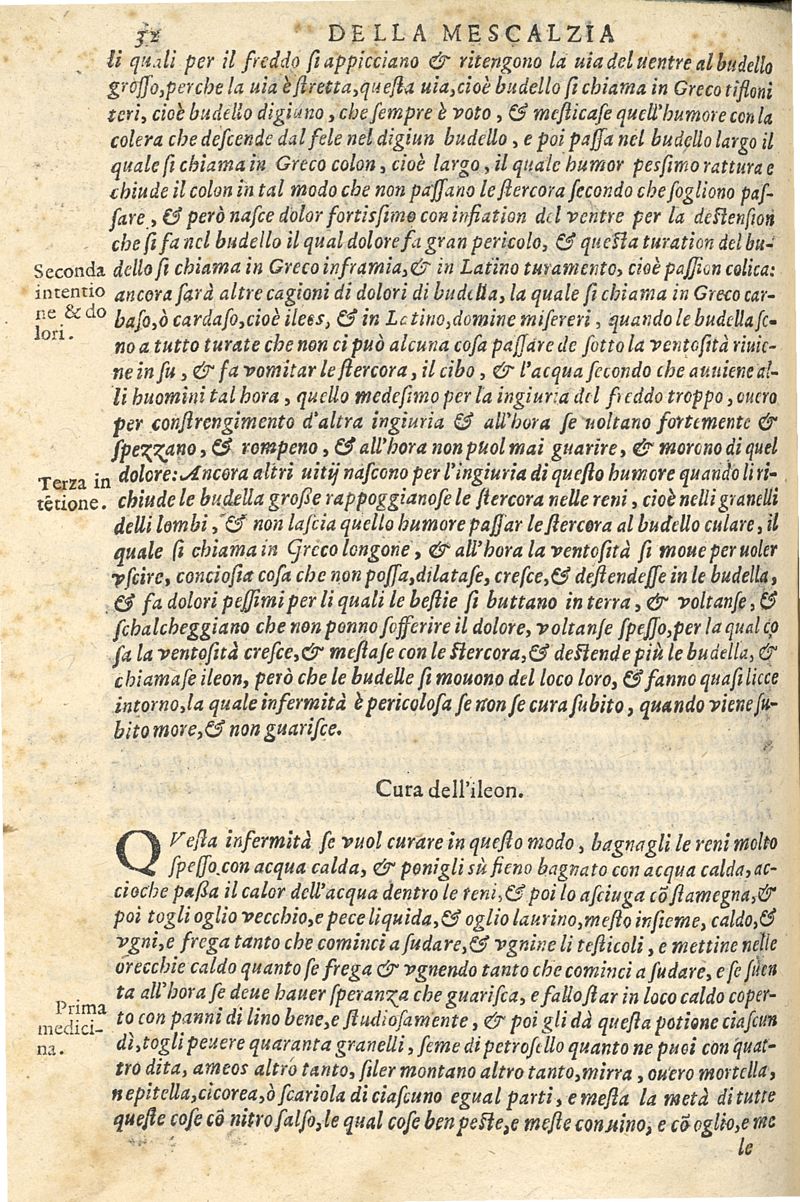 32 DELLA MESCALZIA
li quali per il freddo si appicciano & ritengono la uia del uentre al budello
grosso, perche la uia è stretta, questa uia, cioè budello si chiama in Greco tisloni
teri, cioè budello digiuno, che sempre è voto, & mesticase quell'humore con la
colera che descende dal fele nel digiun budello, e poi passa nel budello largo il
quale si chiama in Greco colon, cioè largo, il quale humor pessimo rattura e
chiude il colon in tal modo che non passano le stercora secondo che sogliono pas-
sare, & però nasce dolor fortissimo con infiation del ventre per la destension
che si fa nel budello il qual dolore fa gran pericolo, & questa turation del bu-
Seconda intentio ne & do lori.
dello si chiama in Greco inframia, & in Latino turamento, cioè passion colica:
ancora sarà altre cagioni di dolori di budella, la quale si chiama in Greco car-
baso, ò cardaso, cioè ilees, & in Latino, domine misereri, quando le budella se-
no a tutto turate che non ci può alcuna cosa passare de sotto la ventosità riuie-
ne in su, & fa vomitar le stercora, il cibo, & l'acqua secondo che auuiene al-
li huomini tal hora, quello medesimo per la ingiuria del freddo troppo, ouero
per constrengimento d'altra ingiuria & all'hora se uoltano fortemente &
spezzano, & rompeno, & all'hora non puol mai guarire, & morono di quel
Terza in tẽtione.
dolore: Ancora altri uitij nascono per l'ingiuria di questo humore quando li ri-
chiude le budella große rappoggianose le stercora nelle reni, cioè nelli granelli
delli lombi, & non lascia quello humore passar le stercora al budello culare, il
quale si chiama in Greco longone, & all'hora la ventosità si moue per uoler
vscire, conciosia cosa che non possa, dilatase, cresce, & destendesse in le budella,
& fa dolori pessimi per li quali le bestie si buttano in terra, & voltanse, &
schalcheggiano che non ponno sofferire il dolore, voltanse spesso, per la qual co
sa la ventosità cresce, & mestase con le stercora, & destende più le budella, &
chiamase ileon, però che le budelle si mouono del loco loro, & fanno quasi licce
intorno, la quale infermità è pericolosa se non se cura subito, quando viene su-
bito more, & non guarisce.
Cura dell'ileon.
QVesta infermità se vuol curare in questo modo, bagnagli le reni molto
spesso con acqua calda, & ponigli sù fieno bagnato con acqua calda, ac-
cioche paßa il calor dell'acqua dentro le reni, & poi lo asciuga cõ stamegna, &
poi togli oglio vecchio, e pece liquida, & oglio laurino, mesto insieme, caldo, &
vgni, e frega tanto che cominci a sudare, & vgnine li testicoli, e mettine nelle
orecchie caldo quanto se frega & vgnendo tanto che cominci a sudare, e se suen
ta all'hora se deue hauer speranza che guarisca, e fallo star in loco caldo coper-
Prima medici- na.
to con panni di lino bene, e studiosamente, & poi gli dà questa potione ciascun
dì, togli peuere quaranta granelli, seme di petrosello quanto ne puoi con quat-
tro dita, ameos altro tanto, siler montano altro tanto, mirra, ouero mortella,
nepitella, cicorea, ò scariola di ciascuno egual parti, e mesta la metà di tutte
queste cose cõ nitro salso, le qual cose ben peste, e meste con uino, e cõ oglio, e me
le